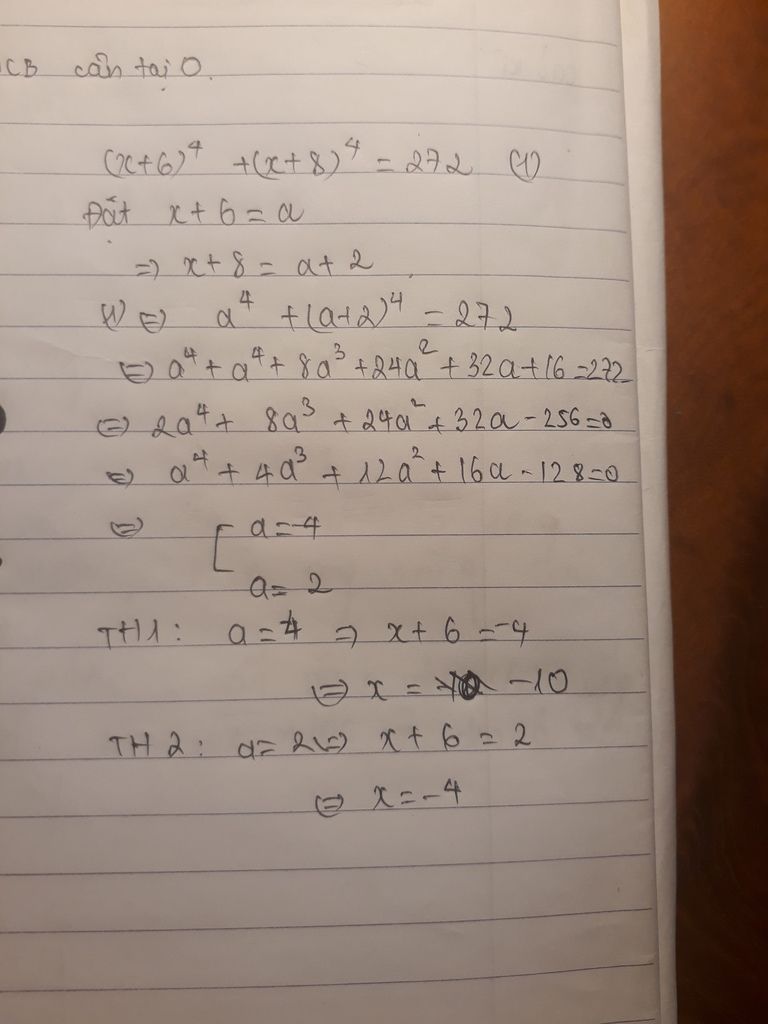 CB cân tại O.
(x+6)⁴ + (x+8)⁴ = 272 (1)
Đặt x + 6 = a
=> x + 8 = a + 2
(1) <=> a⁴ + (a+2)⁴ = 272
<=> a⁴ + a⁴ + 8a³ + 24a² + 32a + 16 = 272
<=> 2a⁴ + 8a³ + 24a² + 32a - 256 = 0
<=> a⁴ + 4a³ + 12a² + 16a - 128 = 0
<=> [ a = -4
a = 2
TH1: a = -4 => x + 6 = -4
<=> x = -10
TH2: a = 2 <=> x + 6 = 2
<=> x = -4